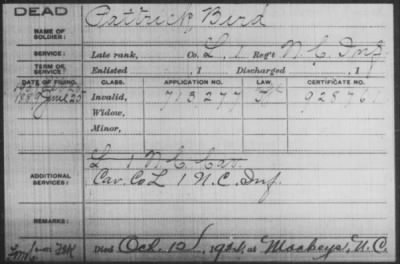 DEAD
NAME OF SOLDIER: Pattrick Bird
SERVICE: Late rank, Co. L, 1 Reg't N.C. Inf.
TERM OF SERVICE: Enlisted , 1 Discharged , 1
DATE OF FILING. CLASS. APPLICATION NO. LAW. CERTIFICATE NO.
1889 June 25 Invalid, 713277 928761
Widow,
Minor,
L 1 N.C. Cav.
ADDITIONAL SERVICES: Cav. Co L 1 N.C. Inf.
REMARKS:
Died Oct. 12, 1921, at Mackeys, N.C.